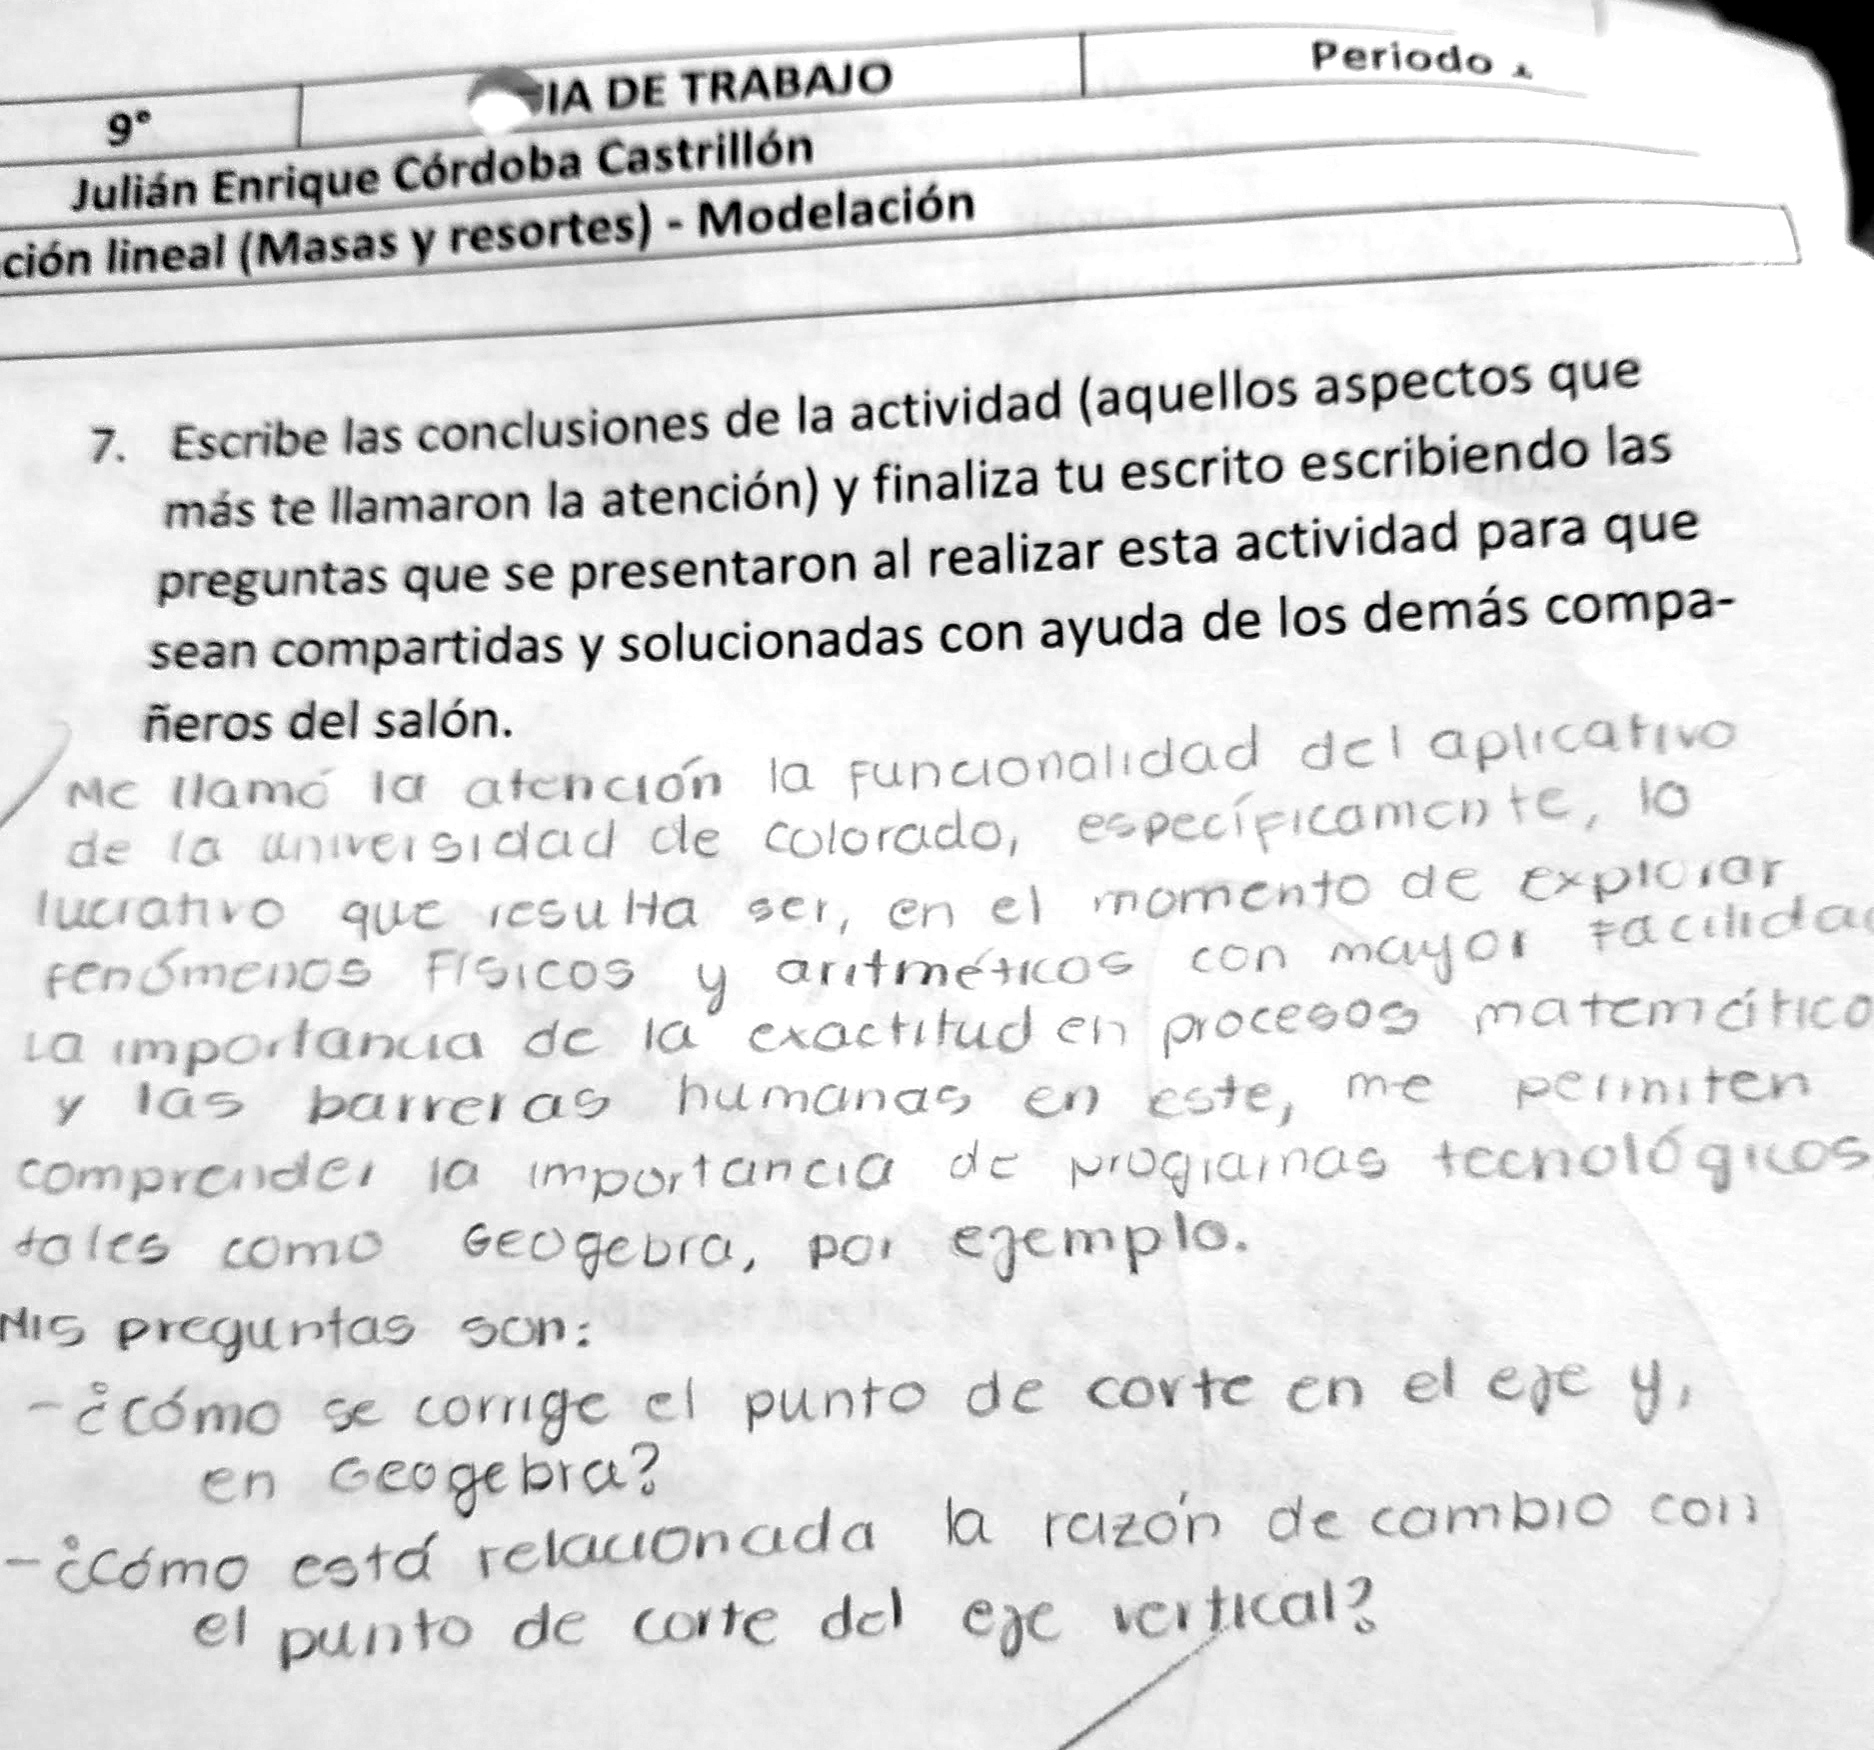 9°
IA DE TRABAJO
Periodo
Julián Enrique Córdoba Castrillón
ción lineal (Masas y resortes) - Modelación
7. Escribe las conclusiones de la actividad (aquellos aspectos que
más te llamaron la atención) y finaliza tu escrito escribiendo las
preguntas que se presentaron al realizar esta actividad para que
sean compartidas y solucionadas con ayuda de los demás compa-
ñeros del salón.
Me llamó la atención la funcionalidad del aplicativo
de la universidad de colorado, específicamente, lo
lucrativo que resulta ser, en el momento de explorar
fenómenos físicos y aritméticos con mayor facilida
La importancia de la exactitud en procesos matemático
y las barreras humanas en este, me permiten
comprender la importancia de programas tecnológicos
tales como Geogebra, por ejemplo.
Mis preguntas son:
-¿cómo se corrige el punto de corte en el eje y,
en Geogebra?
-¿Cómo está relacionada la razón de cambio con
el punto de corte del eje vertical?